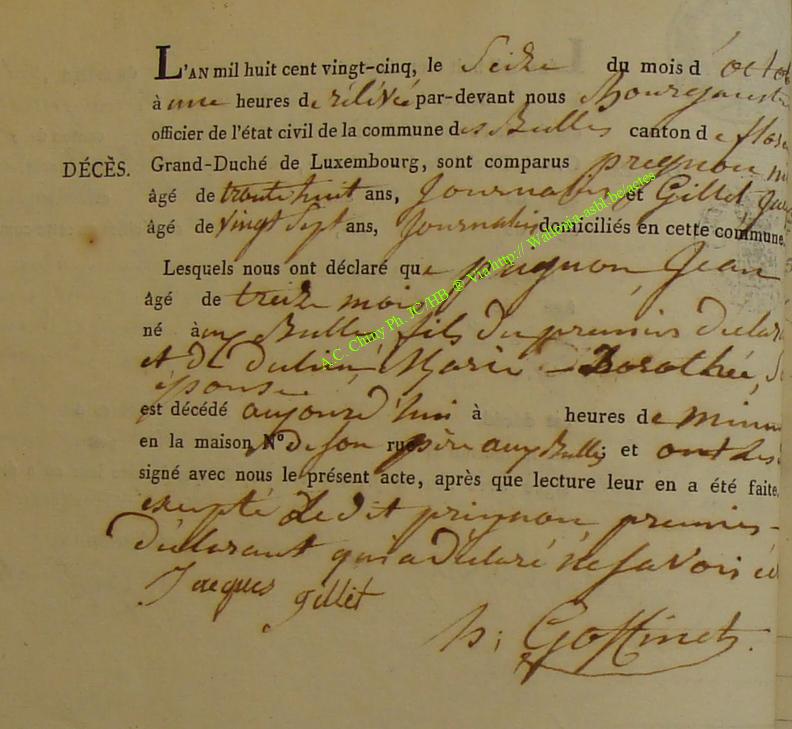 L'AN mil huit cent vingt-cinq, le Seize du mois d'octo
à une heures de rélévée par-devant nous Bourgmestre
officier de l'état civil de la commune des Bulles canton de flore
DÉCÈS. Grand-Duché de Luxembourg, sont comparus prignon
âgé de trente huit ans, Journalier et Gillet Jacq
âgé de vingt Sept ans, Journalier domiciliés en cette commune.
Lesquels nous ont déclaré que prignon, Jean
âgé de treize mois
né aux Bulles, fils du premier déclara
et de Marie Dorothée, S
épouse
est décédé aujourd'hui à heures de minui
en la maison N° de son rue père aux Bulles et ont les
signé avec nous le présent acte, après que lecture leur en a été faite,
excepté Ledit prignon, premier
déclarant qui a déclaré ne savoir éc
Jacques gillet
h; Goffinet
A.C. Chiny Ph. JC /HB @ Via http:// Wallonia-asbl.be/actes